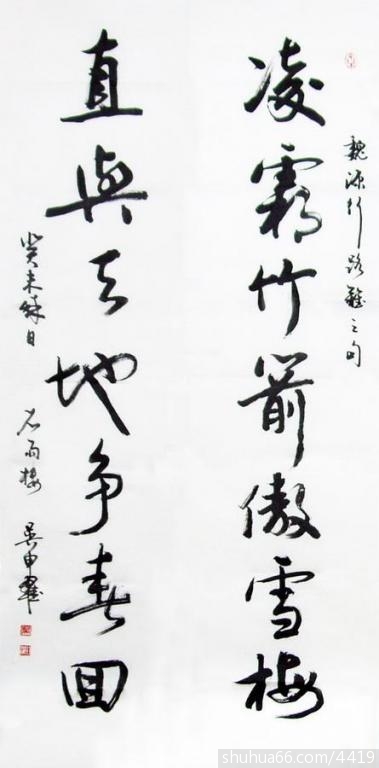 魏源行路難之句
凌霜竹箭傲雪梅
直與天地争春回
癸未秋日 石雨楼 吴申耀
shuhua66.com/4419